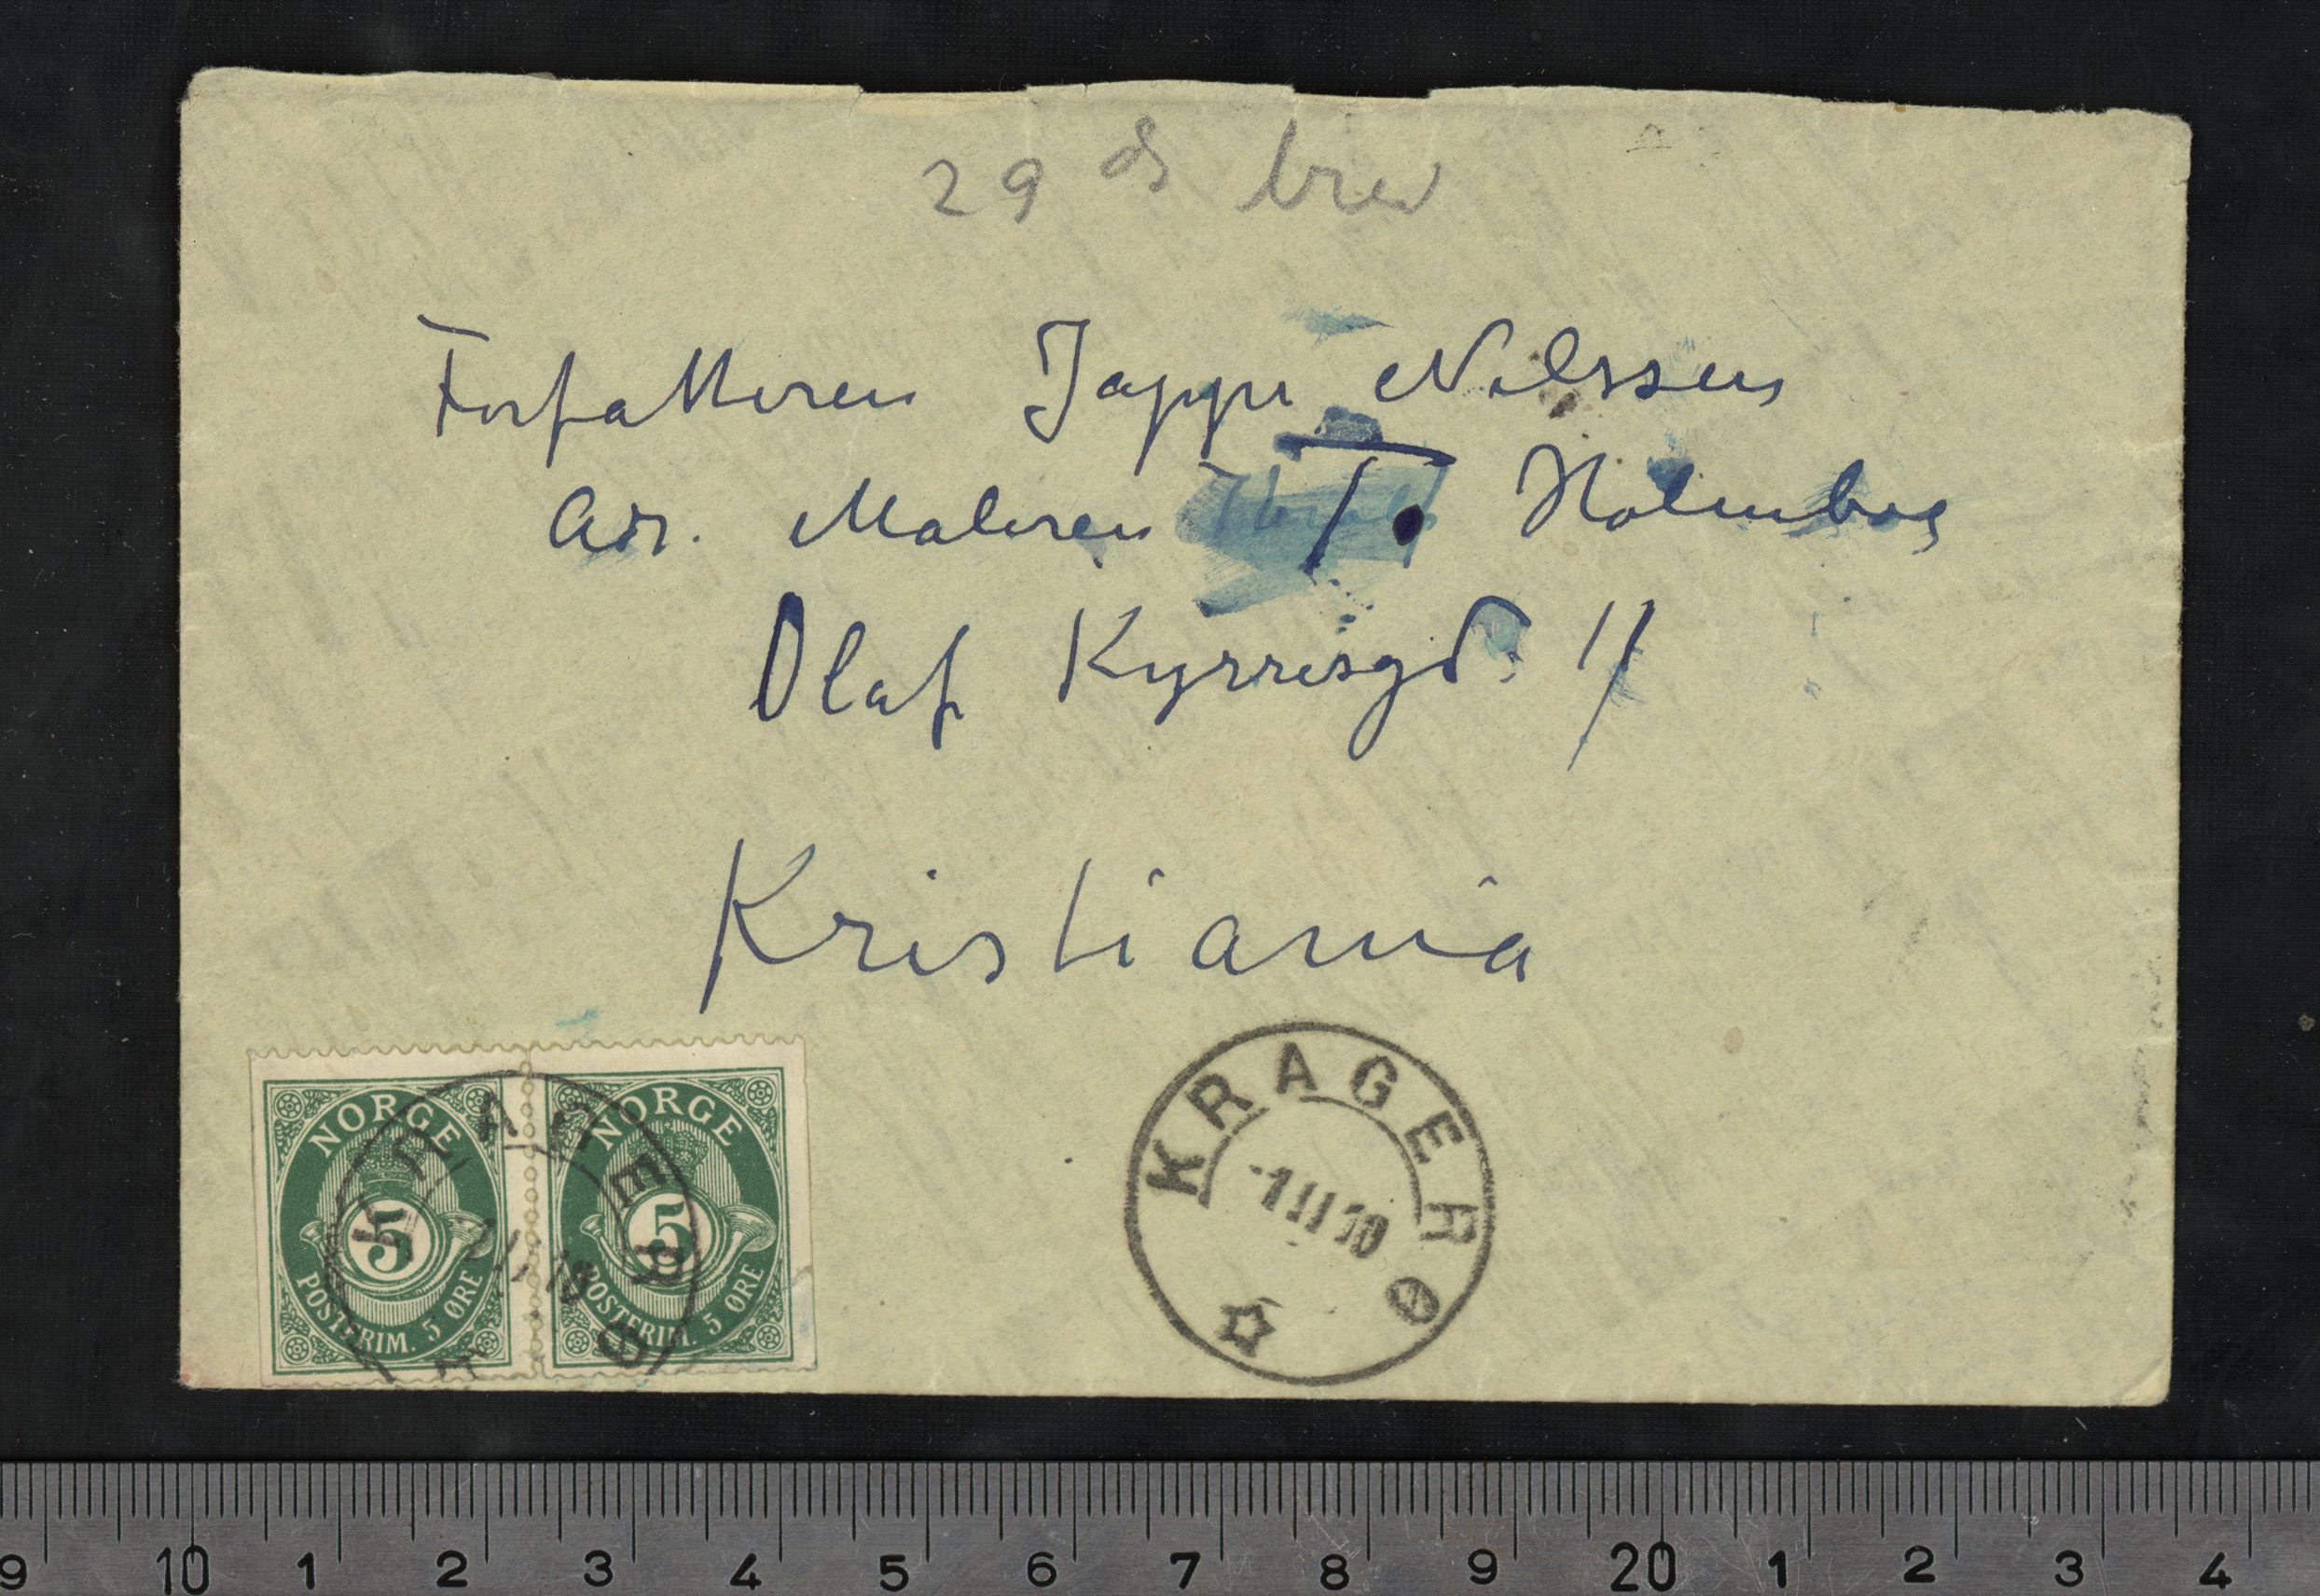 29 ds brev
Forfatteren Jappe Nilssen
Adr. Maleren T. Holmboe
Olaf Kyrresgd. 11
Kristiania
NORGE
5
POSTFRIM. 5 ØRE
NORGE
5
POSTFRIM. 5 ØRE
KRAGERØ
KRAGERØ
-1 II 10
9 10 1 2 3 4 5 6 7 8 9 20 1 2 3 4